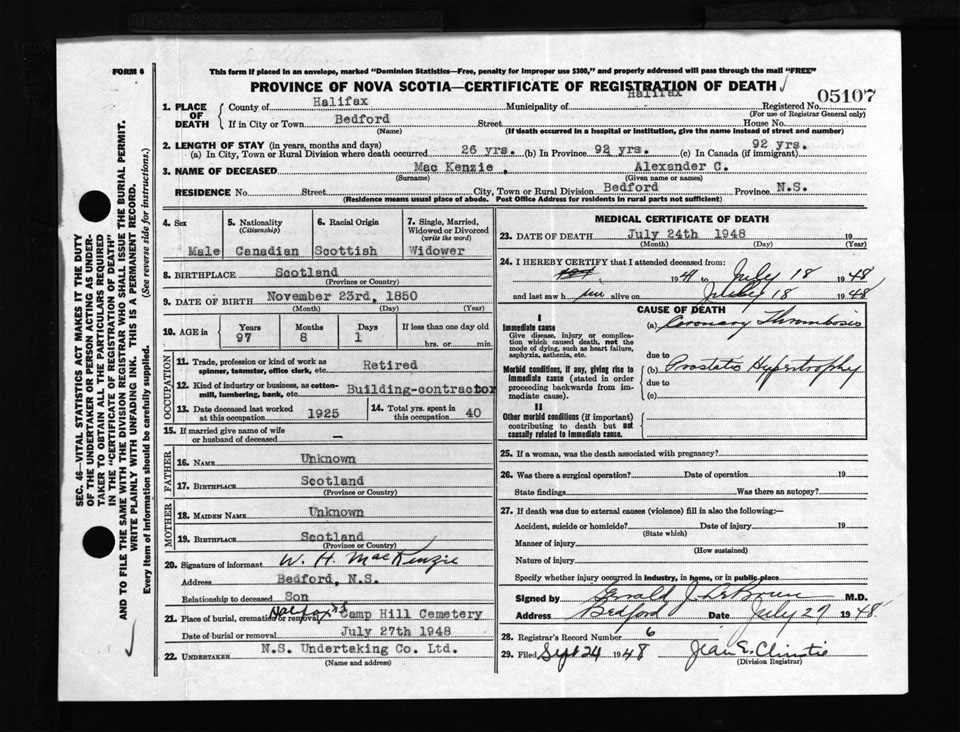 FORM 6
This form if placed in an envelope, marked "Dominion Statistics—Free, penalty for improper use $300," and properly addressed will pass through the mail "FREE"
PROVINCE OF NOVA SCOTIA—CERTIFICATE OF REGISTRATION OF DEATH
05107
1. PLACE OF DEATH
County of Halifax Municipality of Halifax Registered No.
(For use of Registrar General only)
If in City or Town Bedford Street House No.
(Name) (If death occurred in a hospital or institution, give the name instead of street and number)
2. LENGTH OF STAY (in years, months and days)
(a) In City, Town or Rural Division where death occurred 26 yrs. (b) In Province 92 yrs. (c) In Canada (if immigrant) 92 yrs.
3. NAME OF DECEASED Mac Kenzie, Alexander C.
(Surname) (Given name or names)
RESIDENCE No. Street City, Town or Rural Division Bedford Province N.S.
(Residence means usual place of abode. Post Office Address for residents in rural parts not sufficient)
4. Sex
Male
5. Nationality
(Citizenship)
Canadian
6. Racial Origin
Scottish
7. Single, Married, Widowed or Divorced
(write the word)
Widower
8. BIRTHPLACE Scotland
(Province or Country)
9. DATE OF BIRTH November 23rd, 1850
(Month) (Day) (Year)
10. AGE in Years Months Days If less than one day old
97 8 1 hrs. or min.
OCCUPATION
11. Trade, profession or kind of work as
spinner, teamster, office clerk, etc. Retired
12. Kind of industry or business, as cotton-
mill, lumbering, bank, etc. Building-contractor
13. Date deceased last worked
at this occupation 1925
14. Total yrs. spent in
this occupation 40
15. If married give name of wife
or husband of deceased –
FATHER
16. NAME Unknown
17. BIRTHPLACE Scotland
(Province or Country)
MOTHER
18. MAIDEN NAME Unknown
19. BIRTHPLACE Scotland
(Province or Country)
20. Signature of informant W. H. MacKenzie
Address Bedford, N.S.
Relationship to deceased Son
21. Place of burial, cremation or removal Halifax Camp Hill Cemetery
Date of burial or removal July 27th 1948
22. UNDERTAKER N.S. Underteking Co. Ltd.
(Name and address)
MEDICAL CERTIFICATE OF DEATH
23. DATE OF DEATH July 24th 1948 19
(Month) (Day) (Year)
24. I HEREBY CERTIFY that I attended deceased from:
1941 to July 18 1948
and last saw him alive on July 18 1948
CAUSE OF DEATH
I
Immediate cause
Give disease, injury or complication which caused death, not the mode of dying, such as heart failure, asphyxia, asthenia, etc.
(a) Coronary Thrombosis
due to
Morbid conditions, if any, giving rise to immediate cause (stated in order proceeding backwards from immediate cause).
(b) Prostatic Hypertrophy
due to
(c)
II
Other morbid conditions (if important) contributing to death but not causally related to immediate cause.
25. If a woman, was the death associated with pregnancy?
26. Was there a surgical operation? Date of operation 19
State findings Was there an autopsy?
27. If death was due to external causes (violence) fill in also the following:—
Accident, suicide or homicide? Date of injury 19
(State which)
Manner of injury
(How sustained)
Nature of injury
Specify whether injury occurred in industry, in home, or in public place
Signed by Gerald J. LeBrun M.D.
Address Bedford Date July 27 1948
28. Registrar's Record Number 6
29. Filed Sept 24 1948 Jean E. Christie
(Division Registrar)
SEC. 46—VITAL STATISTICS ACT MAKES IT THE DUTY
OF THE UNDERTAKER OR PERSON ACTING AS UNDER-
TAKER TO OBTAIN ALL THE PARTICULARS REQUIRED
IN THE "CERTIFICATE OF REGISTRATION OF DEATH"
AND TO FILE THE SAME WITH THE DIVISION REGISTRAR WHO SHALL ISSUE THE BURIAL PERMIT.
WRITE PLAINLY WITH UNFADING INK. THIS IS A PERMANENT RECORD.
Every item of information should be carefully supplied. (See reverse side for instructions.)